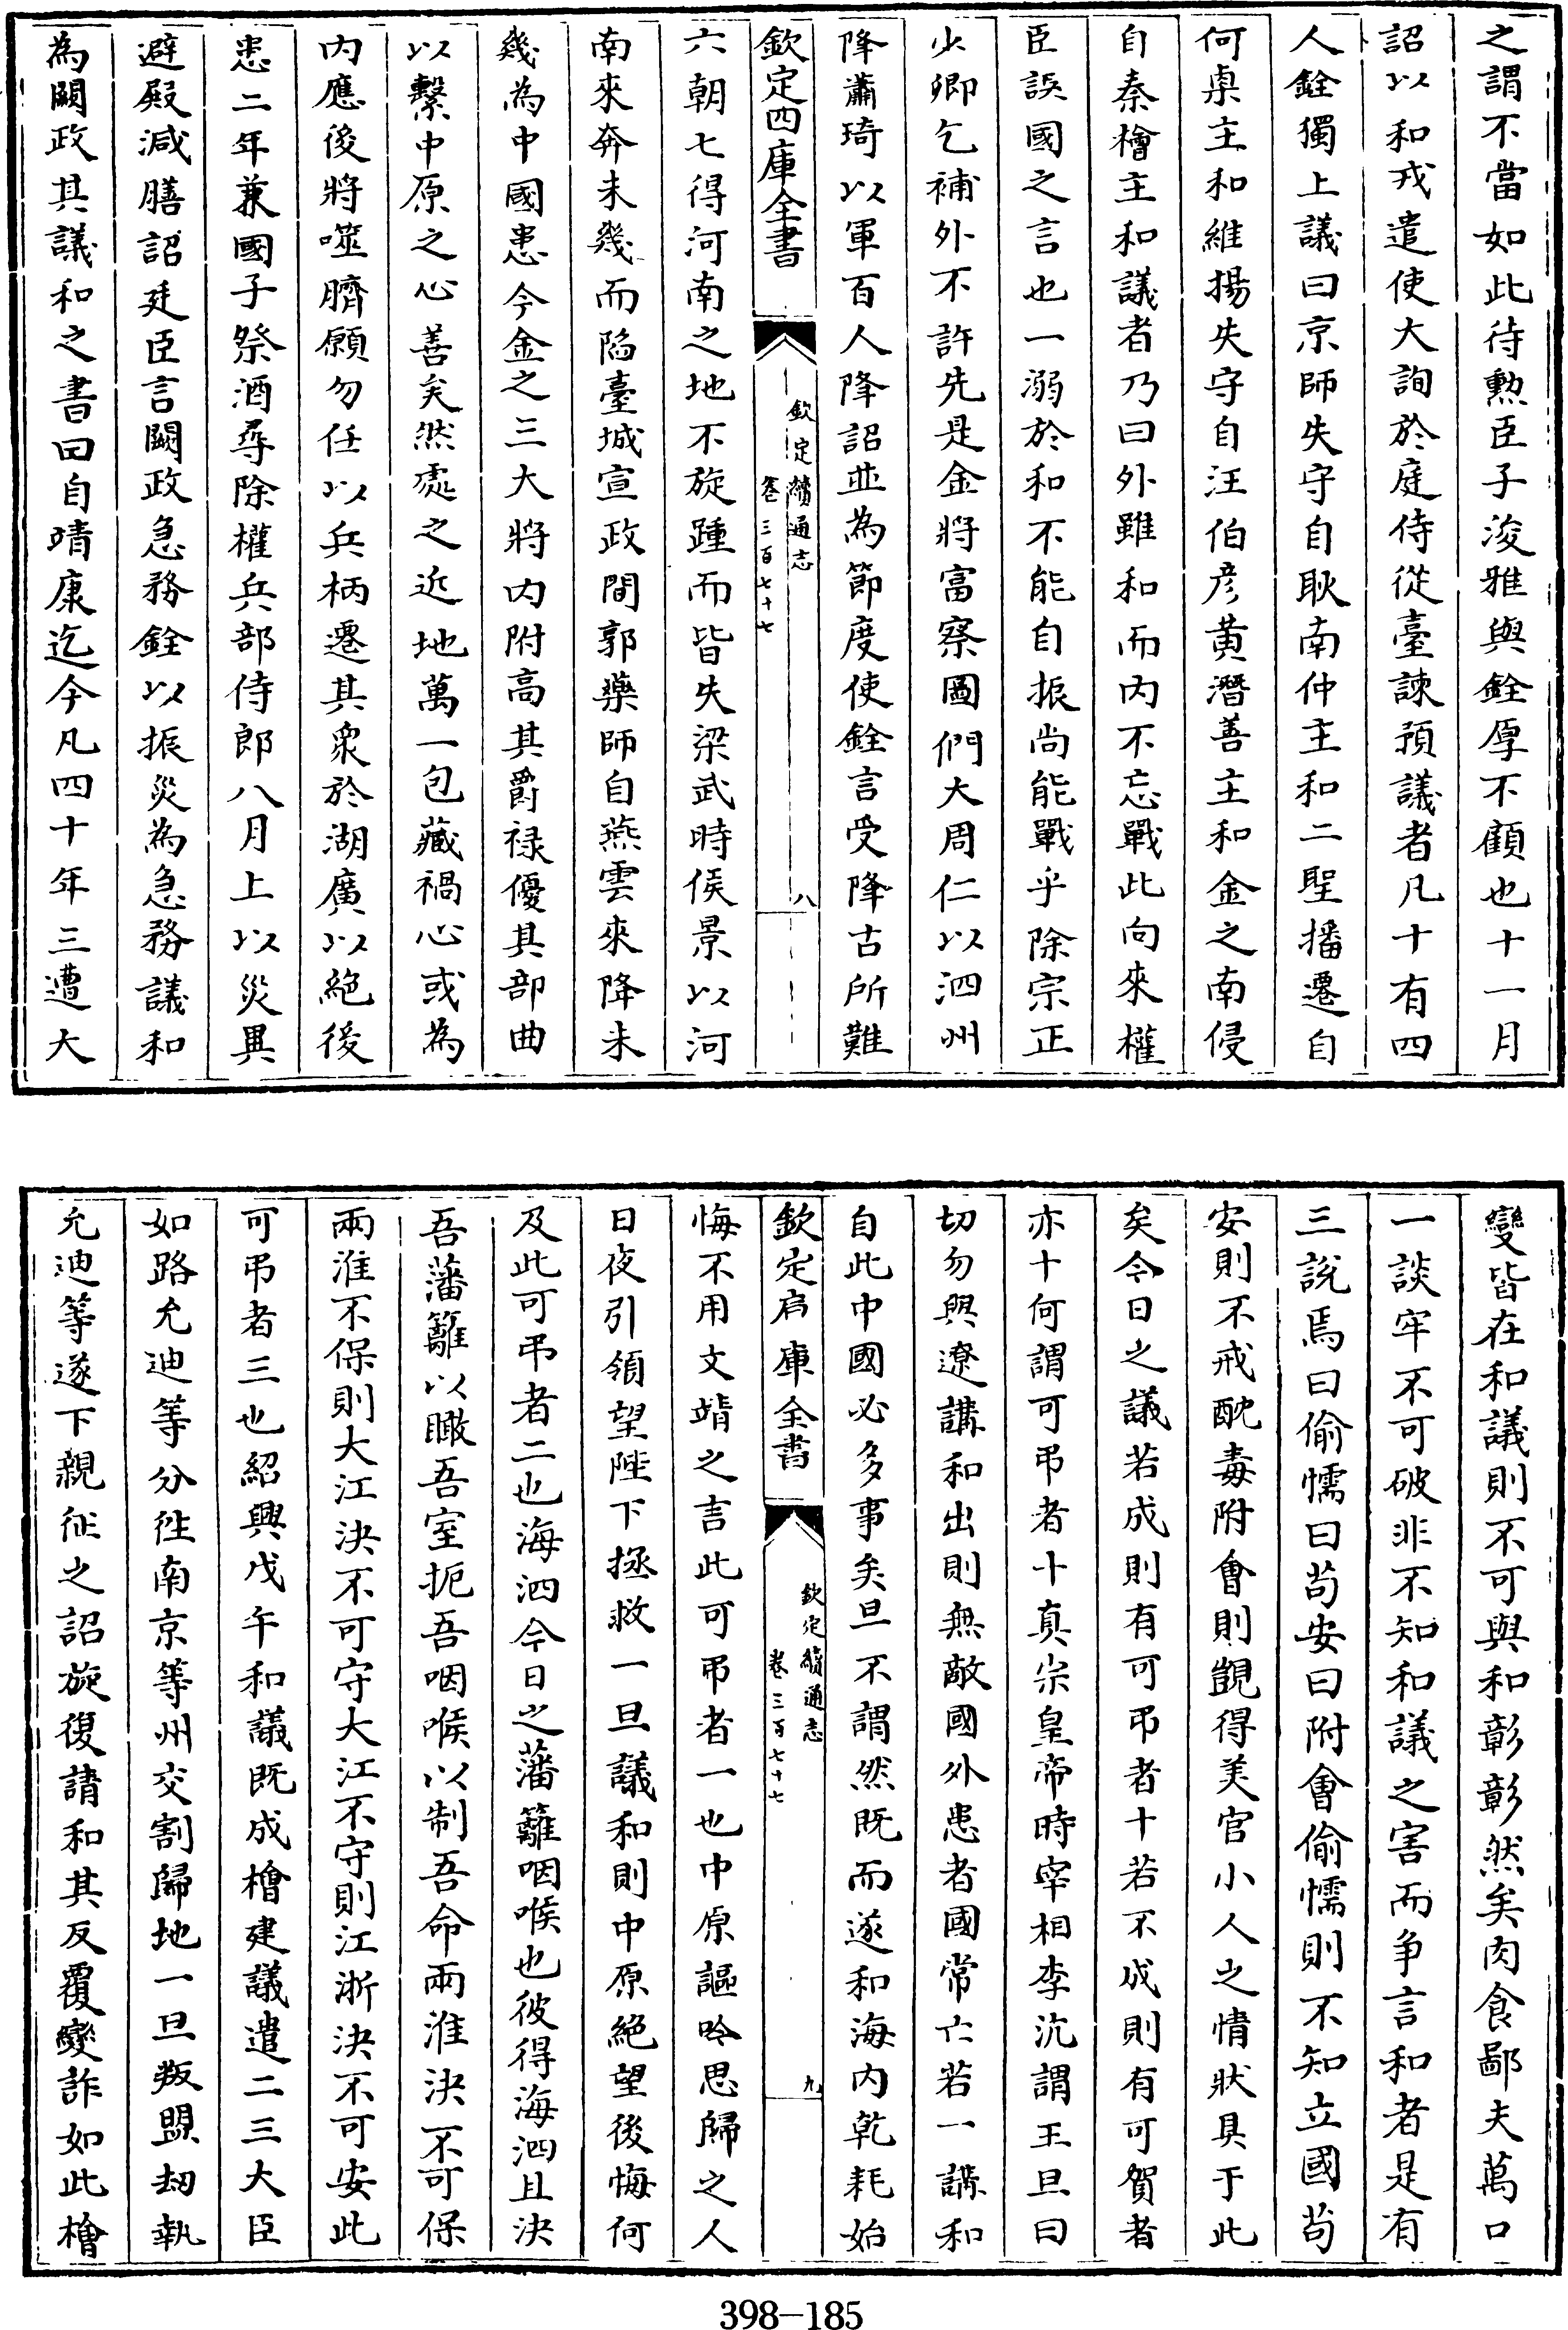 之謂不當如此待勲臣子浚雅與銓厚不顧也十一月
詔以和戎遣使大詢於庭侍從臺諫預議者凡十有四
人銓獨上議曰京師失守自耿南仲主和二聖播遷自
何㮚主和維揚失守自汪伯彦黄潛善主和金之南侵
自秦檜主和議者乃曰外雖和而内不忘戰此向來權
臣誤國之言也一溺於和不能自振尚能戰乎除宗正
少卿乞補外不許先是金將富察圖們大周仁以泗州
降蕭琦以軍百人降詔並為節度使銓言受降古所難
欽定四庫全書
欽定續通志
卷三百七十七
八
六朝七得河南之地不旋踵而皆失梁武時侯景以河
南來奔未幾而陷臺城宣政間郭藥師自燕雲來降未
幾為中國患今金之三大將内附高其爵禄優其部曲
以繫中原之心善矣然處之近地萬一包藏禍心或為
内應後將噬臍願勿任以兵柄遷其衆於湖廣以絶後
患二年兼國子祭酒尋除權兵部侍郎八月上以災異
避殿減膳詔廷臣言闕政急務銓以振災為急務議和
為闕政其議和之書曰自靖康迄今凡四十年三遭大
變皆在和議則不可與和彰彰然矣肉食鄙夫萬口
一談牢不可破非不知和議之害而争言和者是有
三說焉曰偷懦曰苟安曰附會偷懦則不知立國苟
安則不戒酖毒附會則覬得美官小人之情狀具于此
矣今日之議若成則有可弔者十若不成則有可賀者
亦十何謂可弔者十真宗皇帝時宰相李沆謂王旦曰
切勿與遼講和出則無敵國外患者國常亡若一講和
自此中國必多事矣旦不謂然既而遂和海内乾耗始
欽定四庫全書
欽定續通志
卷三百七十七
九
悔不用文靖之言此可弔者一也中原謳吟思歸之人
日夜引領望陛下拯救一旦議和則中原絶望後悔何
及此可弔者二也海泗今日之藩籬咽喉也彼得海泗且決
吾藩籬以瞰吾室扼吾咽喉以制吾命兩淮決不可保
兩淮不保則大江決不可守大江不守則江浙決不可安此
可弔者三也紹興戊午和議既成檜建議遣二三大臣
如路允迪等分往南京等州交割歸地一旦叛盟刼執
允迪等遂下親征之詔旋復請和其反覆變詐如此檜
398-185